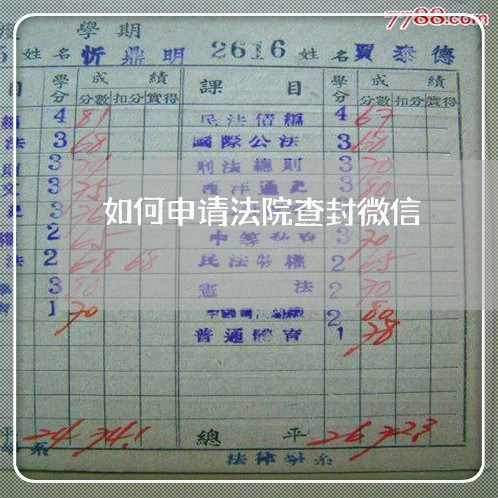 7788.com
學 期
姓名 忻鼎明 2616 姓名 賈泰德
目 學分 成績 課目 學分 成績
分數 扣分 實得 分數 扣分 實得
4 81 民法債編 4 67
法 3 68 國際公法 3 60
3 刑法總則 3 70
3 75 西洋通史 3 80
3
如何申请法院查封微信
2 65 3 70
法 2 68 68 民法物權 2 65
3 80 憲法 2 70
1 70 2 80
普通體育 1 78
平 24 74.1 總平 26 72.3
系 法律學系